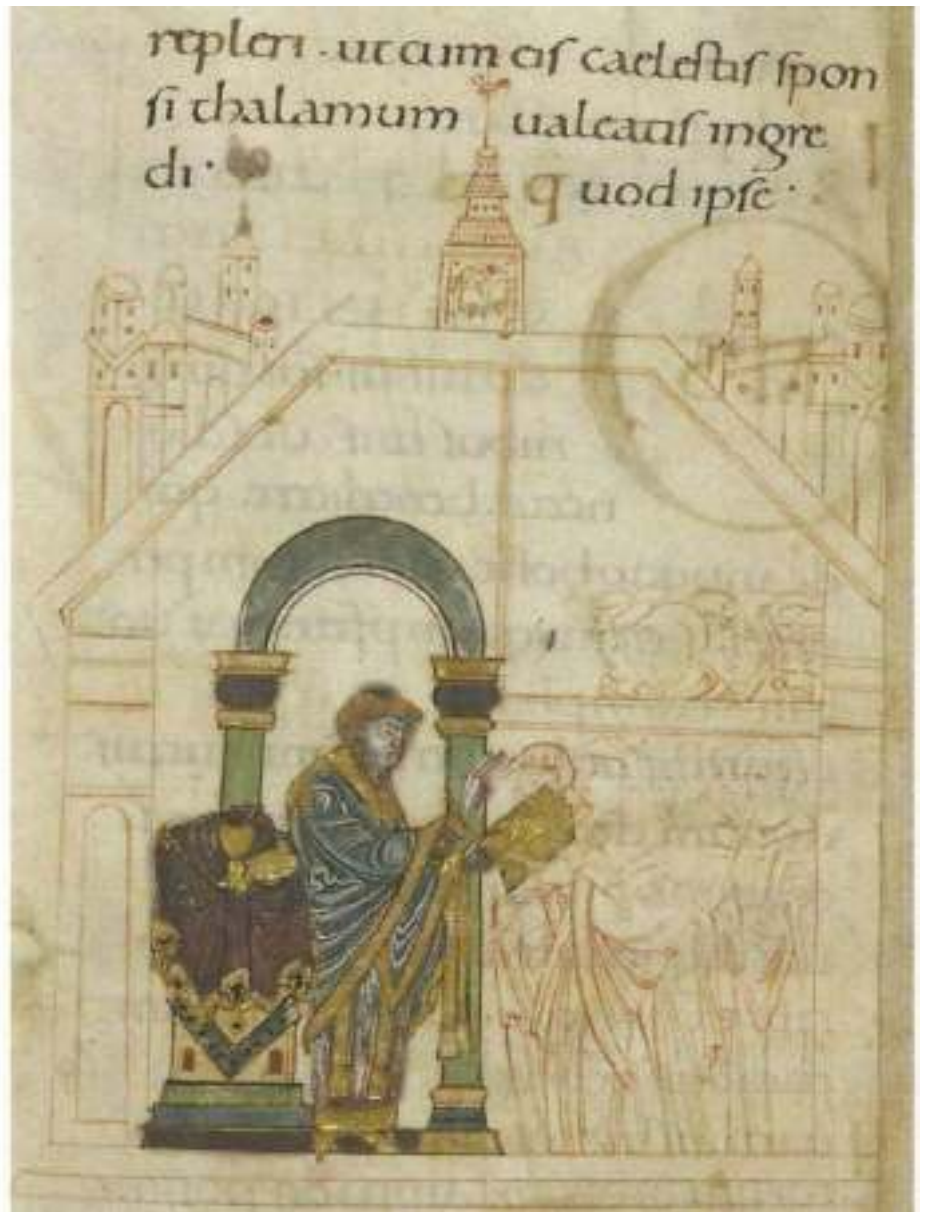 repleri . ut cum eis caelestis spon
si thalamum ualeatis ingre
di · quod ipse ·